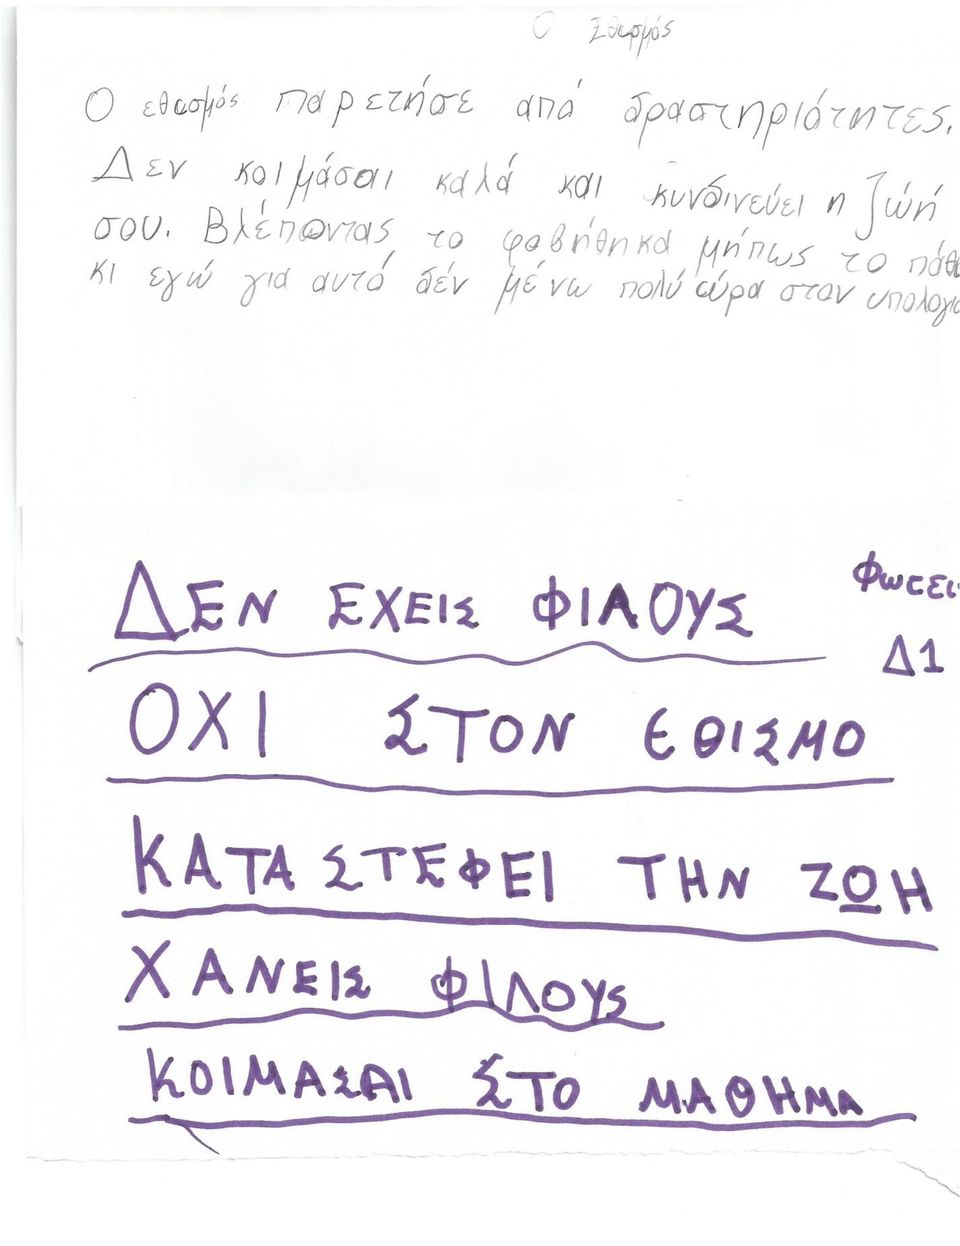 Ο Εθισμός
Ο εθισμός παρετησε από δραστηριότητες.
Δεν κοιμάσαι καλά και κυνδινεύει η ζώή
σου. Βλέποντας το φοβήθηκα μήπως το πάθω
κι εγώ για αυτό δέν μένω πολύ ώρα στον υπολογισ
ΔΕΝ ΕΧΕΙΣ ΦΙΛΟΥΣ
Φωτει
Δ1
ΟΧΙ ΣΤΟΝ ΕΘΙΣΜΟ
ΚΑΤΑΣΤΕΦΕΙ ΤΗΝ ΖΩΗ
ΧΑΝΕΙΣ ΦΙΛΟΥς
ΚΟΙΜΑΣΑΙ ΣΤΟ ΜΑΘΗΜΑ